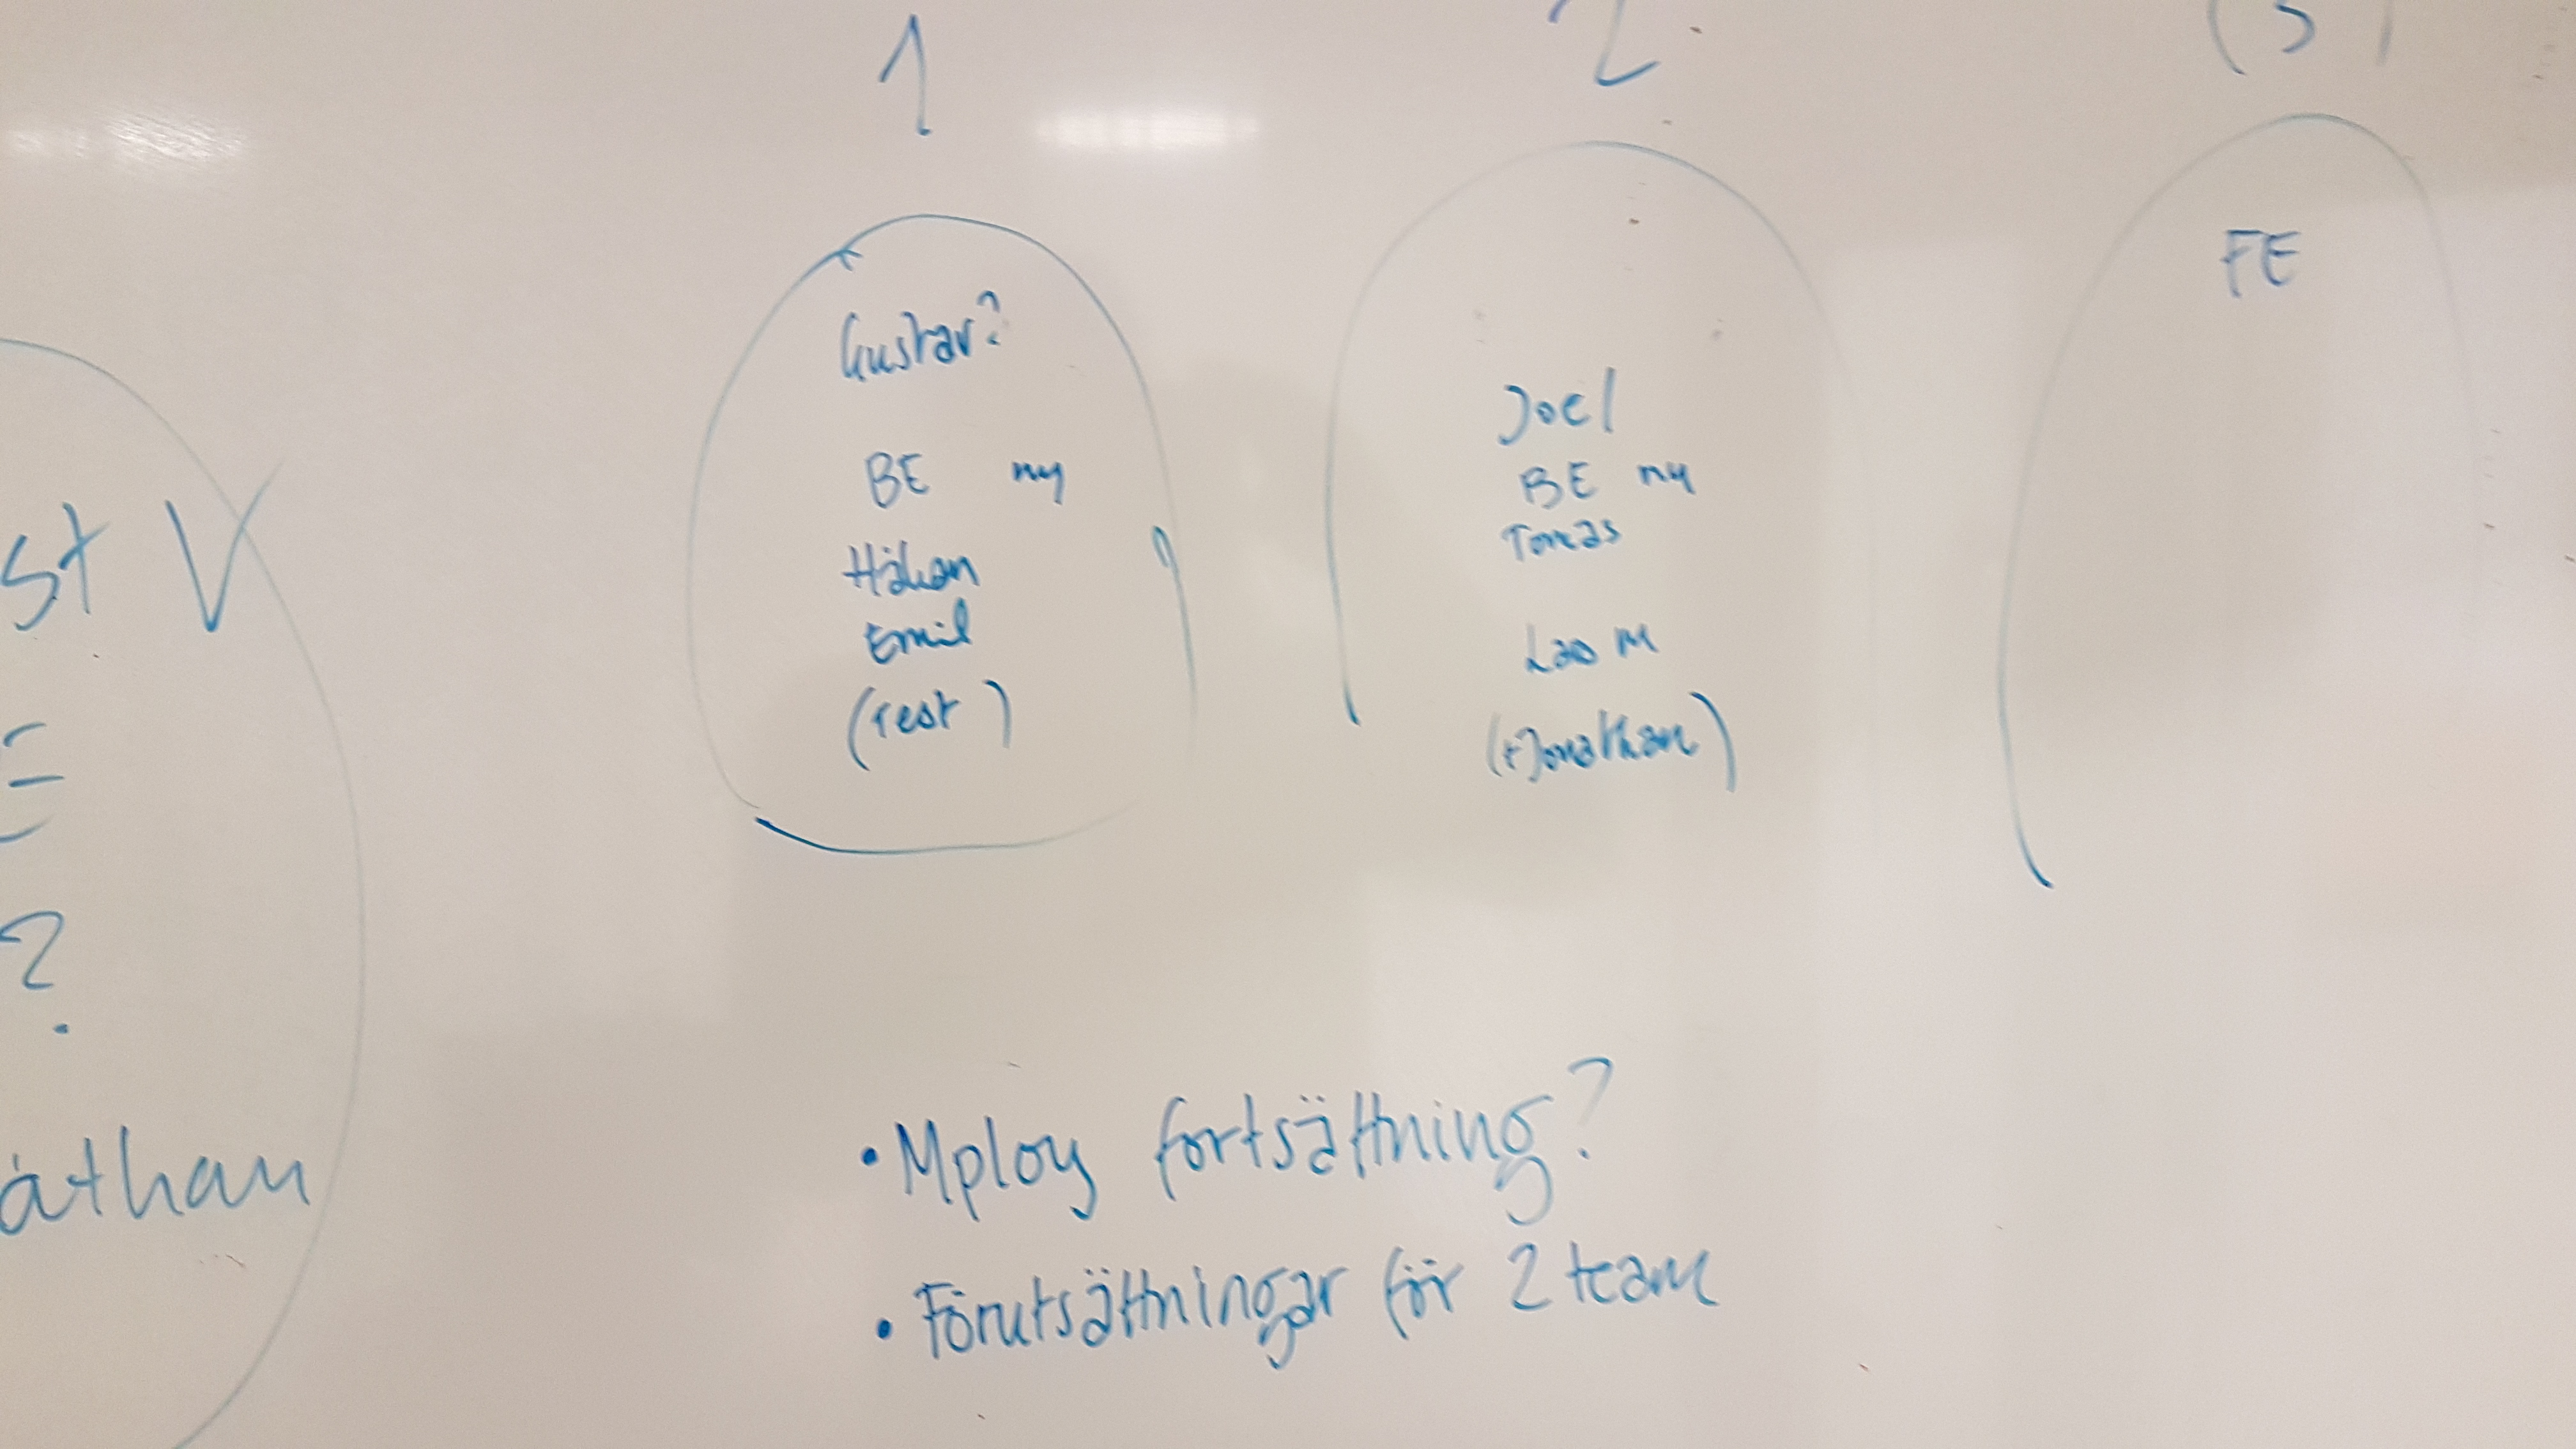 1
2
(3)
Gustav?
BE ny
Håkan
Emil
(Test)
Joel
BE ny
Tomas
M
(+Jonathan)
FE
st V
?
athan
• Mploy fortsättning?
• Förutsättningar för 2 team